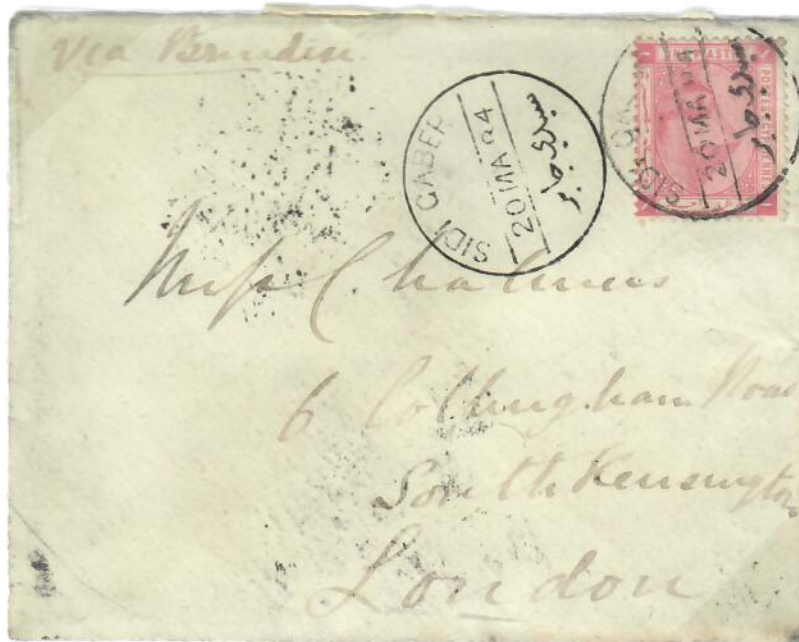 Via Brindisi
SIDI GABER
20 MA 84
سيدى جابر
SIDI GA
20 MA 84
سيدى جابر
Miss Chalmers
6 Collingham Road
South Kensington
London